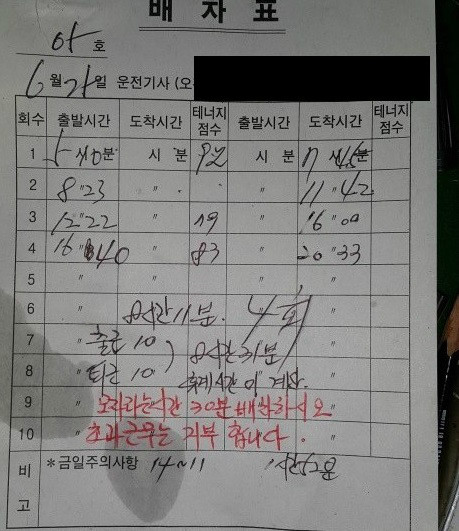 배 차 표
호
6월 29일 운전기사 (오
회수 출발시간 도착시간 테너지점수 출발시간 도착시간 테너지점수
1 5시 10분 시 분 92 시 분 7시 45분
2 8 〃 23 〃 〃 11 〃 42
3 12 〃 22 〃 79 〃 16 〃 00
4 16 〃 40 〃 83 〃 20 〃 33
5 〃 〃 〃 〃
6 8시간 11분. 4회 〃
7 출근 10 ) 8시간 31분 〃
8 퇴근 10 휴게시간 미 계산. 〃
9 〃 모자라는시간 30분 배차하시오 〃
10 〃 초과근무는 거부 합니다. 〃
비고 *금일주의사항 14~11 1시간52분